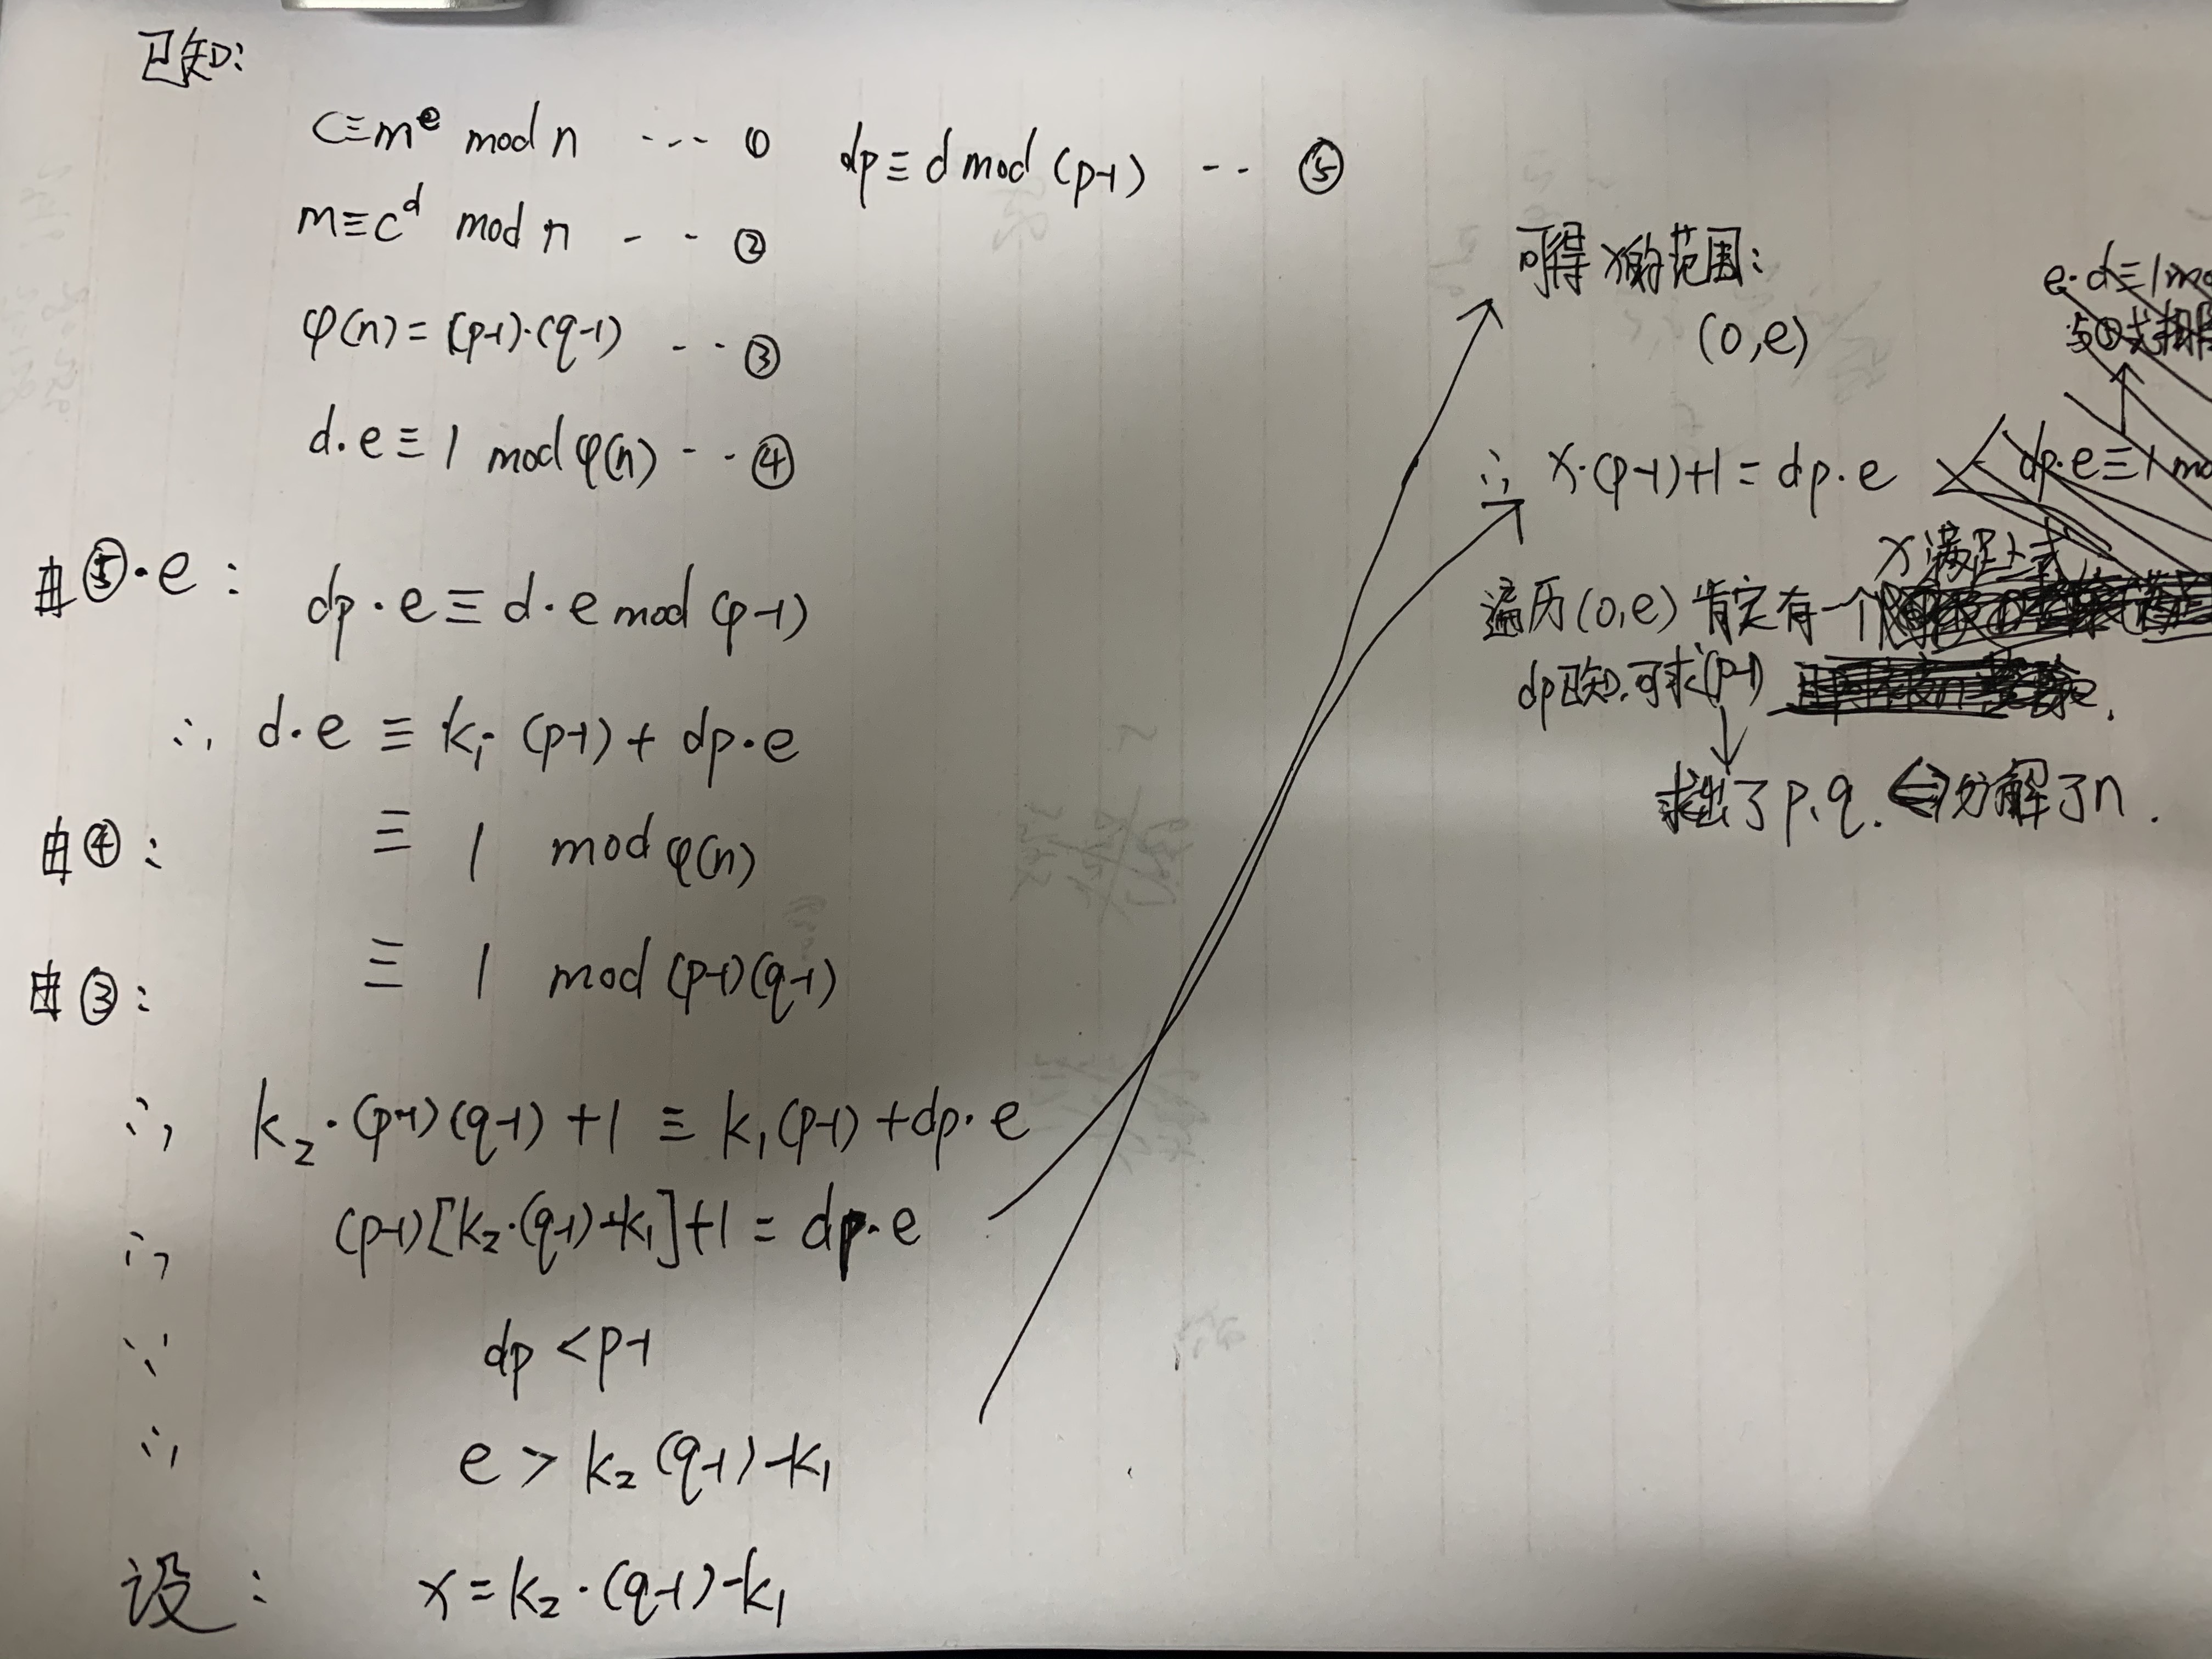 已知:
c≡m^e mod n --- ①
dp≡d mod (p-1) -- ⑤
m≡c^d mod n -- ②
φ(n)=(p-1)·(q-1) -- ③
d·e≡1 mod φ(n) -- ④
由⑤·e: dp·e≡d·e mod (p-1)
∴ d·e ≡ k₁·(p-1)+dp·e
由④: ≡ 1 mod φ(n)
由③: ≡ 1 mod (p-1)(q-1)
∴ k₂·(p-1)(q-1)+1 ≡ k₁(p-1)+dp·e
∴ (p-1)[k₂·(q-1)-k₁]+1=dp·e
∵ dp<p-1
∴ e>k₂(q-1)-k₁
设: x=k₂·(q-1)-k₁
可得x的范围:
(0,e)
∴ x·(p-1)+1=dp·e
x满足上式
遍历(0,e)肯定有一个
dp已知.可求(p-1)
求出了p,q.分解了n.
e·d≡1
dp·e≡1